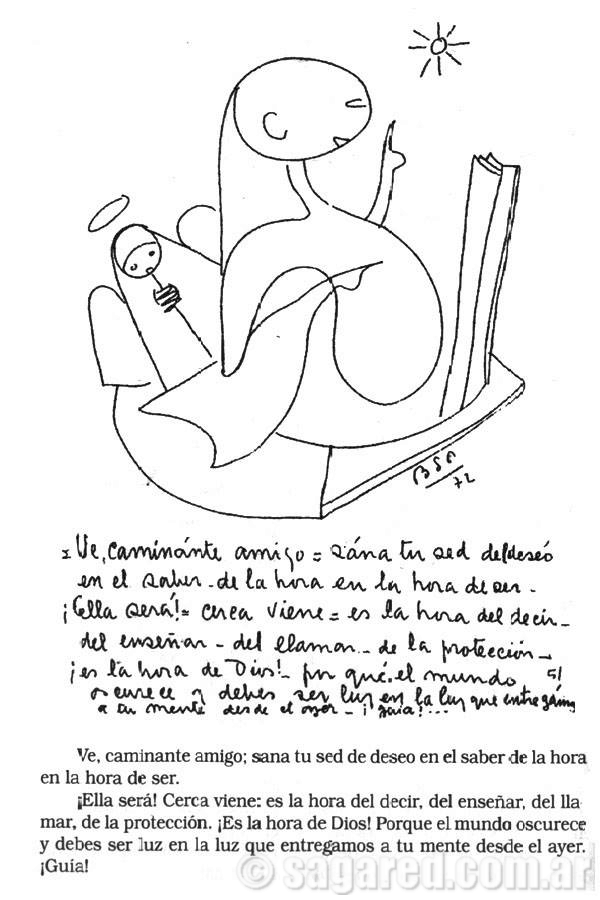 BSP
72
= Ve, caminánte amigo = sána tu sed del deseó
en el saber - de la hora en la hora de ser -
¡Ella será! = cerca viene = es la hora del decir -
del enseñar - del llamar - de la protección -
¡es la hora de Dios! - por qué. el mundo
oscurece y debes ser luz en la luz que entregámos
a tu mente desde el ayer - ¡guía!...
Ve, caminante amigo; sana tu sed de deseo en el saber de la hora
en la hora de ser.
¡Ella será! Cerca viene: es la hora del decir, del enseñar, del lla
mar, de la protección. ¡Es la hora de Dios! Porque el mundo oscurece
y debes ser luz en la luz que entregamos a tu mente desde el ayer.
¡Guía!
© sagared.com.ar